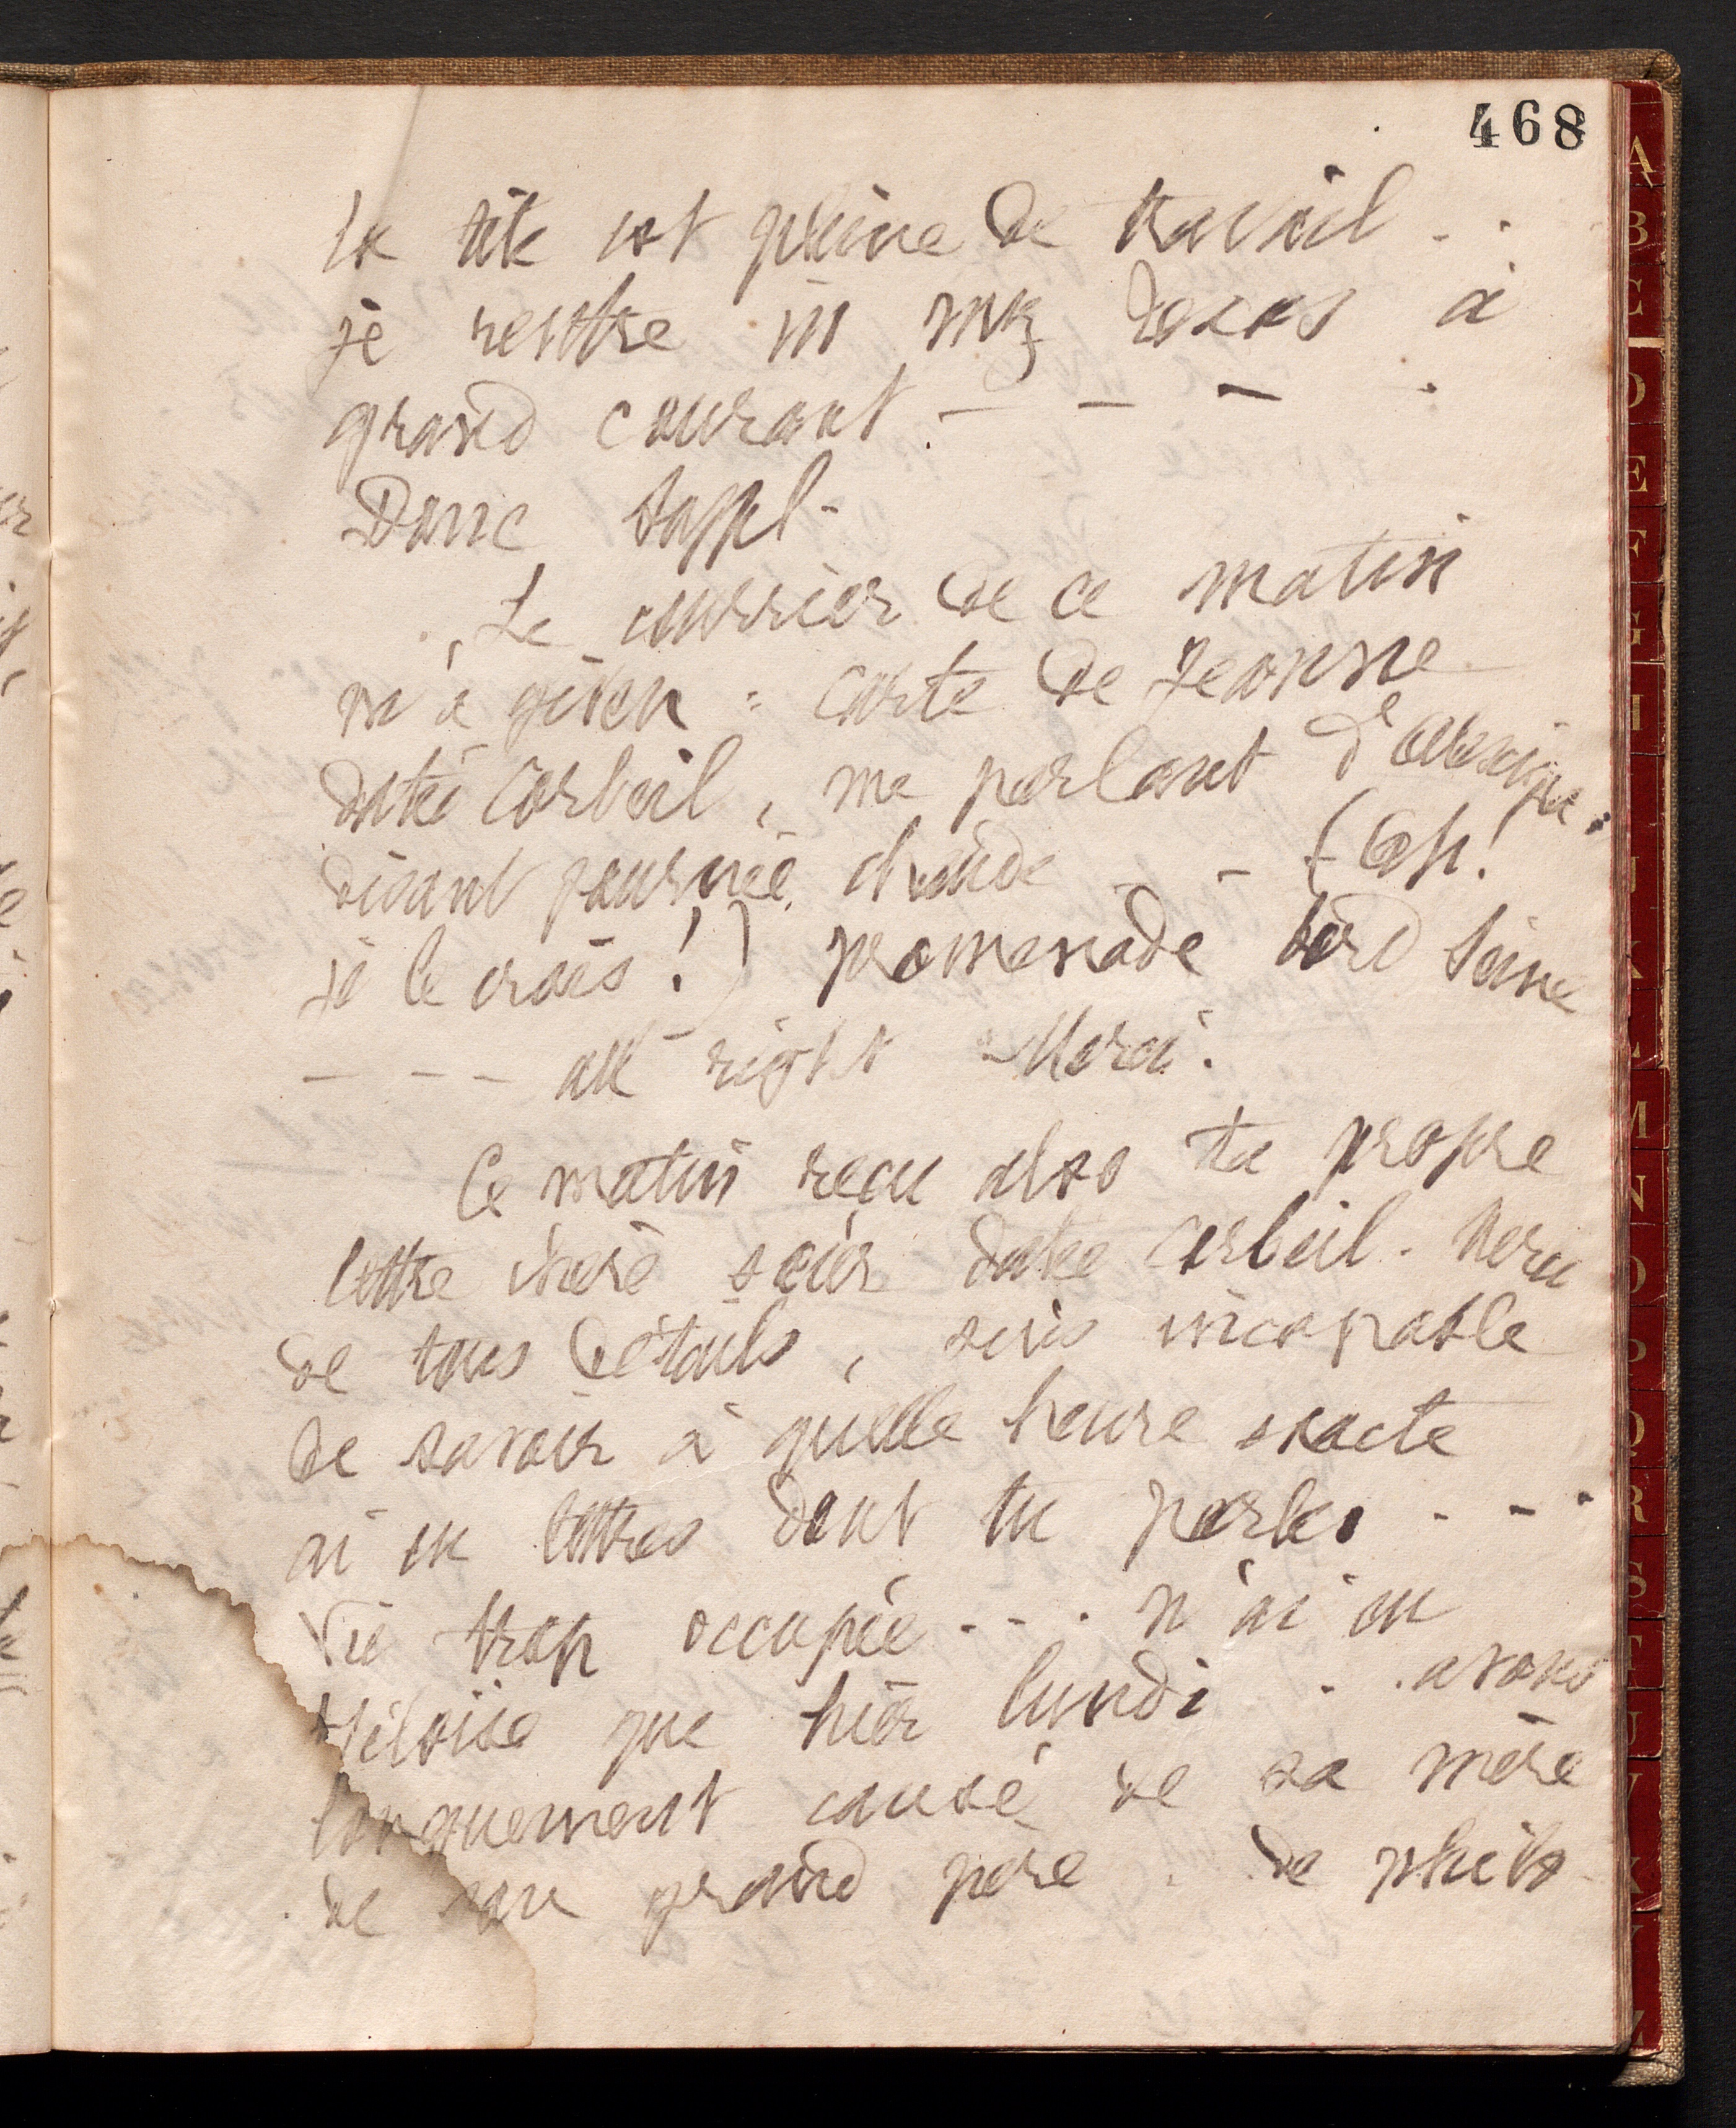 468
la tête est pleine de travail . .
je rentre in my à
grand courant . — — — .
Donc
Le courrier de ce matin
m'a given : carte de Jeanne
datée Corbeil, me parlant d'
disant journée chaude _ - (Oh!
je le crois !) promenade bord Seine
_ _ _ all right Merci.
Ce matin reçu also ta propre
lettre chère sœur datée Corbeil. Merci
de tous détails, suis incapable
de savoir à quelle heure exacte
ai eu lettres dont tu parles . - .
Vie trop occupée . - . n'ai eu
Héloïse que hier lundi . . avons
longuement causé de sa mère
de son grand père . de
A
B
C
D
E
F
G
H
J
K
L
M
N
O
P
Q
R
S
T
U
V
X
Y
Z